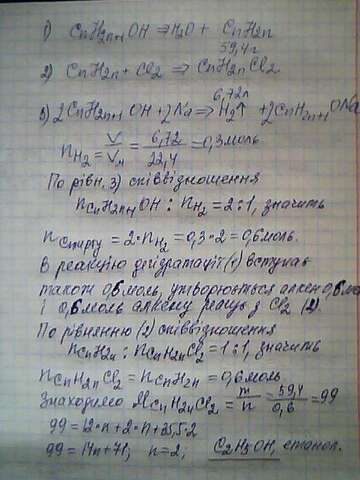 1) CnH2n+1OH ⇒ H2O + CnH2n
59,4г
2) CnH2n + Cl2 ⇒ CnH2nCl2
6,72л
3) 2CnH2n+1OH + 2Na ⇒ H2↑ + 2CnH2n+1ONa
nH2 = V/Vм = 6,72/22,4 = 0,3моль
По рівн. 3) співвідношення
nCnH2n+1OH : nH2 = 2:1, значить
nспирту = 2·nH2 = 0,3·2 = 0,6моль.
В реакцію дегідратації (1) вступає
також 0,6моль, утворюється алкен 0,6моль
і 0,6моль алкену реагує з Cl2 (2).
По рівнянню (2) співвідношення
nCnH2n : nCnH2nCl2 = 1:1, значить
nCnH2nCl2 = nCnH2n = 0,6моль.
Знаходимо MCnH2nCl2 = m/n = 59,4/0,6 = 99
99 = 12·n + 2·n + 35,5·2
99 = 14n + 71; n = 2; C2H5OH, етанол.